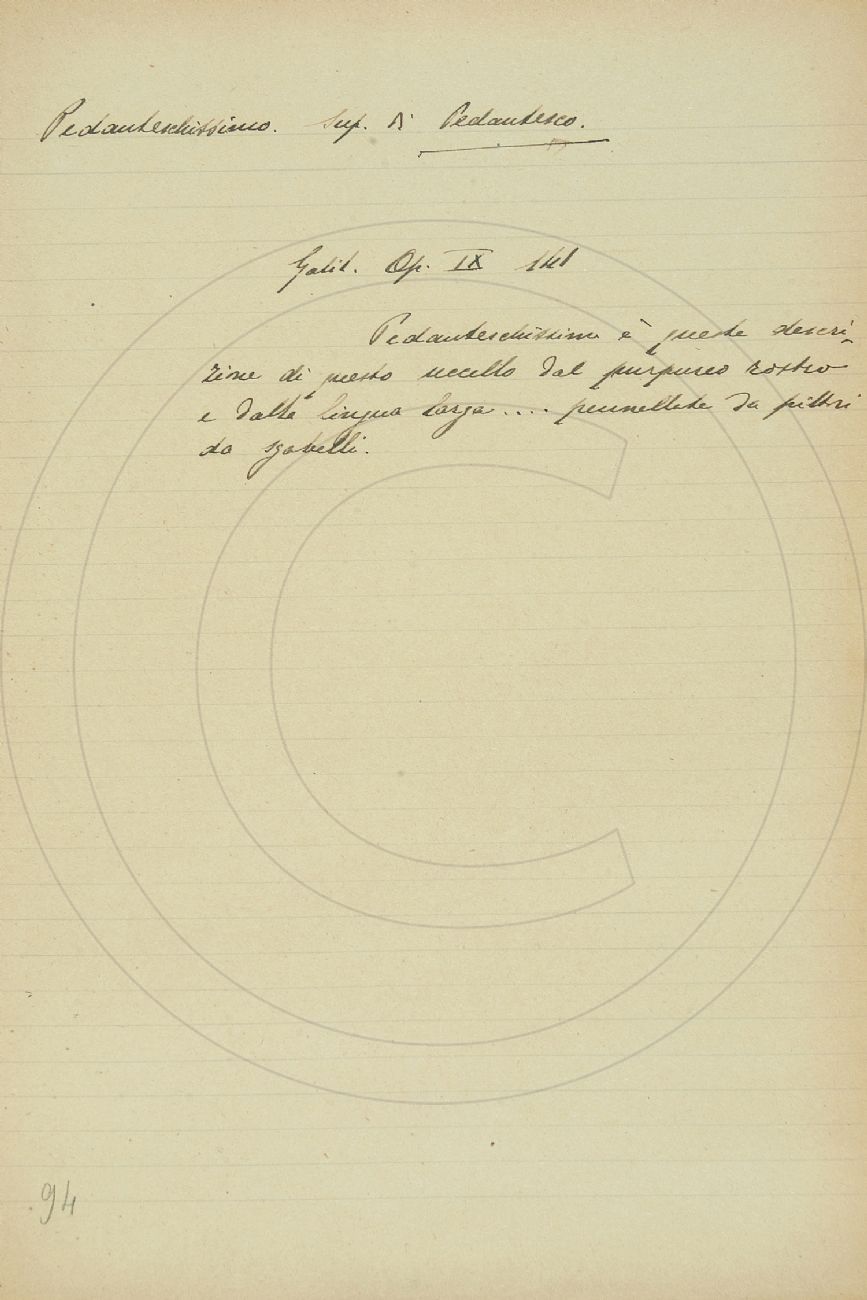 Pedanteschissimo. Sup. di Pedantesco.
Galil. Op. IX 141
Pedanteschissima è questa descri-
zione di questo uccello dal purpureo rostro
e dalla lingua larga.... pennellate da pittori
da sgabelli.
94